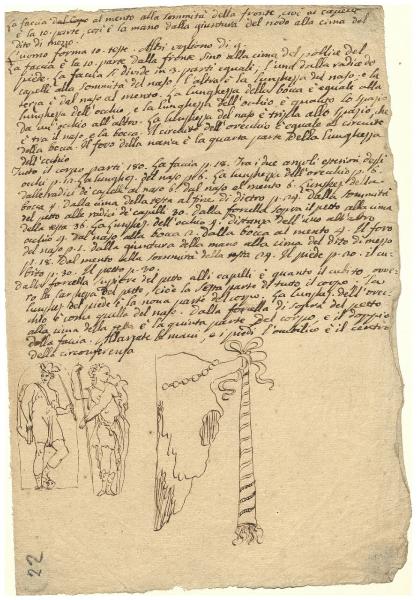 La faccia dal capo al mento alla sommità della fronte, cioè ai capelli
è la 10. parte, così è la mano dalla giuntura del nodo alla cima del
dito di mezzo.
L'uomo forma 10. teste. Altri vogliono di 9.
La faccia è la 10. parte dalla fronte sino alla cima del pollice del
piede. La faccia si divide in 3. parti eguali, l'una dalla radice de
capelli alla sommità del naso, l'altra è la lunghezza del naso, e la
terza è dal naso al mento. La lunghezza della bocca è eguale alla
lunghezza dell'occhio, e la lunghezza dell'occhio è eguale lo spazio
da un'occhio all'altro. La lunghezza del naso è tripla allo spazio che
è tra il naso e la bocca. Il circuito dell'orecchio è eguale al circuito
della bocca. Il foro della narice è la quarta parte della lunghezza
dell'occhio
Tutto il corpo parti 180. La faccia p. 18. Tra i due angoli esteriori degli
occhi p. La lunghez. del naso p. 6. La lunghezza dell'orecchio p. 6.
dalle radici de' capelli al naso 6. dal naso al mento 6. Lunghez. della
bocca 4. dalla cima della testa al fine di dietro p. 24. dalla sommità
del petto alle radici de' capelli 30. dalla forcella sopra il petto alla cima
della testa 36. La lunghez. dell'occhio 4. distanza dell'uno all'altro
occhio 4. dal naso alla bocca 2. dalla bocca al mento 4. Il foro
del naso p. 1. dalla giuntura della mano alla cima del dito di mezzo
p. 18. Dal mento alla sommità della testa 24. Il piede p. 30. il cu-
bito p. 30. Il petto p. 30.
Dalla forcella superiore del petto alli capelli è quanto il cubito, ovve-
ro la larghezza del petto, cioè la sesta parte di tutto il corpo. La
lunghez. del piede è la nona parte del corpo. La lunghez. dell'orec-
chio è come quella del naso. Dalla forcella di sopra del petto
alla cima della testa è la quinta parte del corpo, e il doppio
della faccia. Allargate le mani, e i piedi l'ombilico è il centro
della circonferenza
22